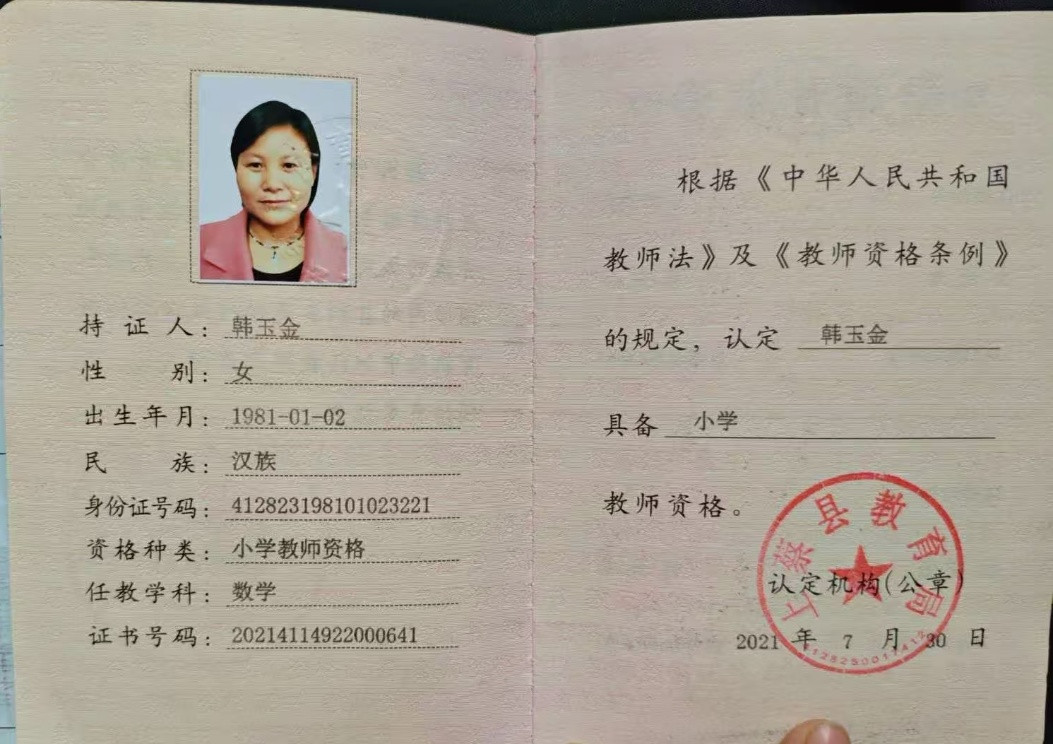 持证人：韩玉金
性别：女
出生年月：1981-01-02
民族：汉族
身份证号码：412823198101023221
资格种类：小学教师资格
任教学科：数学
证书号码：20214114922000641
根据《中华人民共和国
教师法》及《教师资格条例》
的规定，认定 韩玉金
具备 小学
教师资格。
上蔡县教育局
认定机构(公章)
2021 年 7 月 30 日